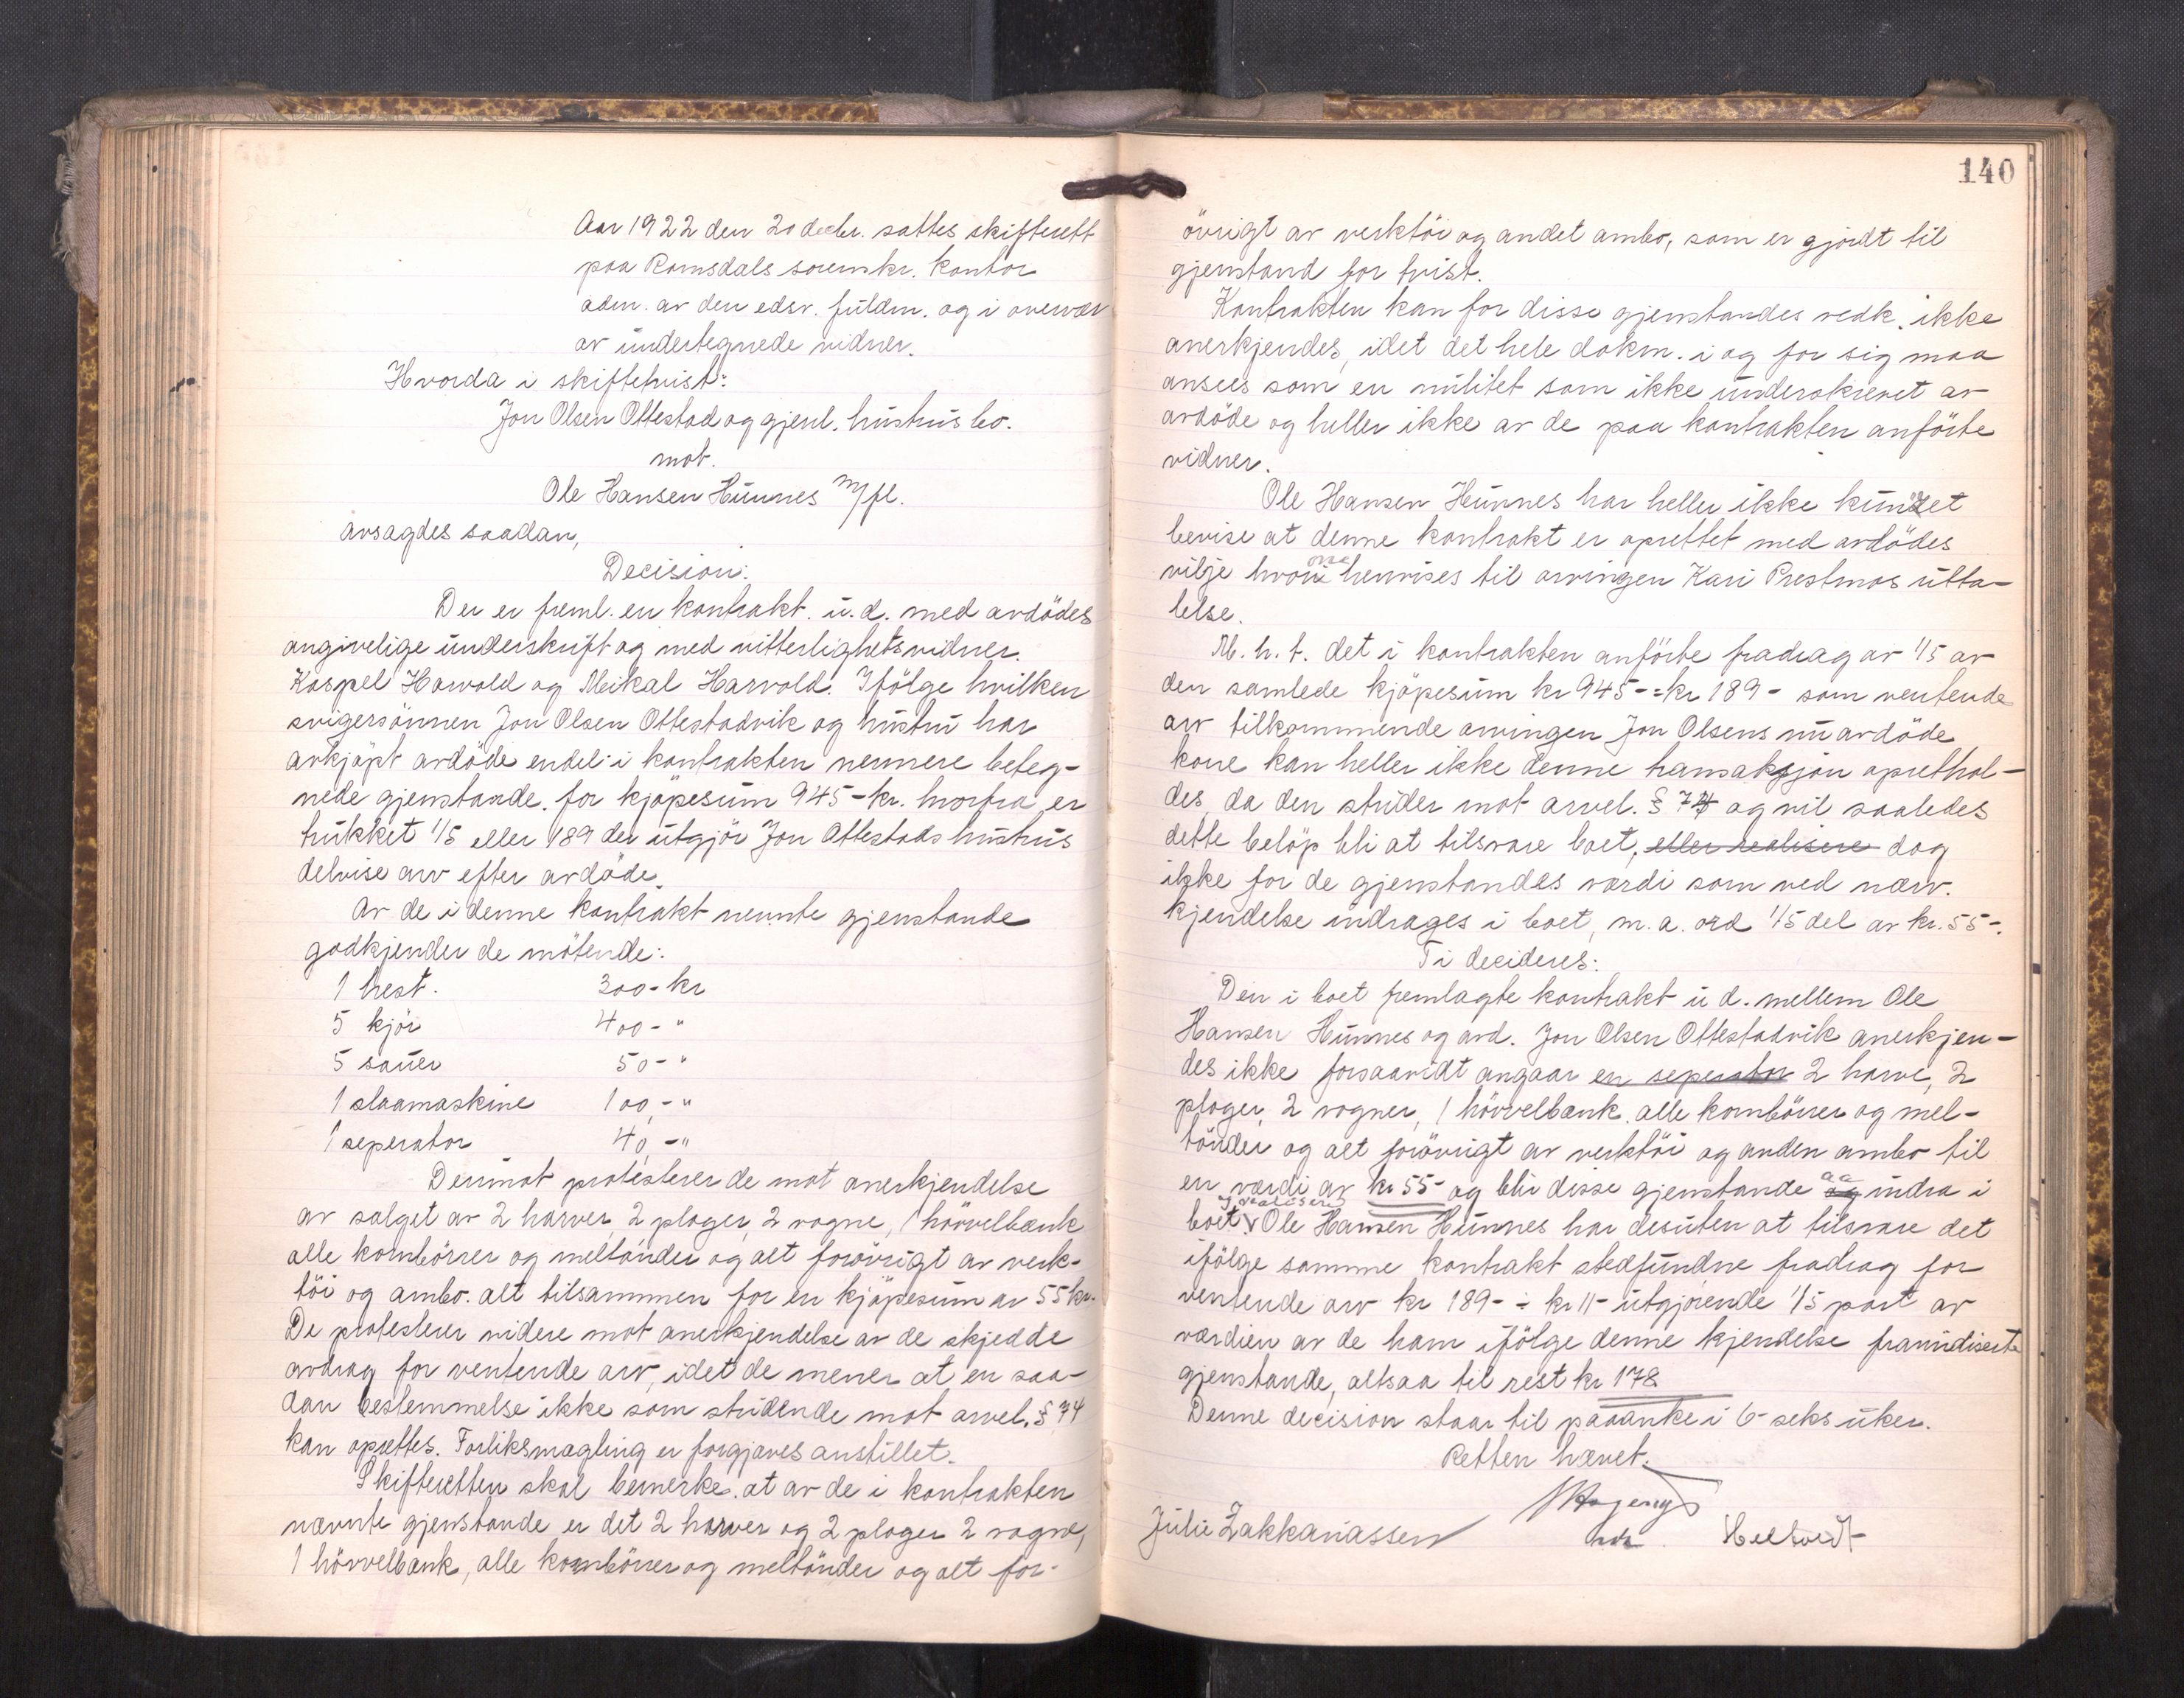 Aar 1922 den 20 decbr. sattes skifterett
paa Romsdals sorenskr. kontor
adm. av den edsv. fuldm. og i overvær
av undertegnede vidner.
Hvorda i skiftetvist:
Jon Olsen Ottestad og gjenl. hustrus bo.
mot.
Ole Hansen Hunnes m/fl.
avsagdes saadan,
Decision:
Der er freml. en kontrakt. u.d. med avdödes
angivelige underskrift og med vitterlighetsvidner.
Kaspel Harvold og Mikal Harvold. Ifölge hvilken
svigersönnen Jon Olsen Ottestadvik og hustru har
avkjöpt avdöde endel i kontrakten nermere beteg-
nede gjenstande. for kjöpesum 945-kr. hvorfra er
trukket 1/5 eller 189 der utgjör Jon Ottestads hustrus
delvise arv efter avdöde.
Av de i denne kontrakt nevnte gjenstande
godkjender de mötende:
1 hest. 300- kr
5 kjör 400- "
5 sauer 50- "
1 slaamaskine 100,- "
1 seperator 40,- "
Derimot protesterer de mot anerkjendelse
av salget av 2 harver 2 ploger, 2 vogne, 1 höövelbænk
alle kornbörrer og meltönder og alt forövrigt av verk-
töi og ambo. alt tilsammen for en kjöpesum av 55 kr.
De protesterer videre mot anerkjendelse av de skjedde
avdrag for ventende arv, idet de mener at en saa-
dan bestemmelse ikke som stridende mot arvel. § 74
kan oprettes. Forliksmægling er forgjæves anstillet.
Skifteretten skal bemerke. at av de i kontrakten
nævnte gjenstande er det 2 harver og 2 ploger 2 vogne,
1 hövvelbænk, alle kornbörrer og meltönder og alt for-
140
övrigt av verktöi og andet ambo, som er gjordt til
gjenstand for tvist.
Kontrakten kan for disse gjenstandes vedk. ikke
anerkjendes, idet det hele dokm. i og for sig maa
ansees som en nullitet som ikke underskrevet av
avdöde og heller ikke av de paa kontrakten anförte
vidner.
Ole Hansen Hunnes har heller ikke kunnet
bevise at denne kontrakt er oprettet med avdödes
vilje hvorom henvises til arvingen Kari Prestmos utta-
lelse.
M. h. t. det i kontrakten anförte fradrag av 1/5 av
den samlede kjöpesum kr 945-=kr 189- som ventende
arv tilkommende arvingen Jon Olsens nu avdöde
kone kan heller ikke denne transaksjon oprethol-
des, da den strider mot arvel. § 74 og vil saaledes
dette belöp bli at tilsvare boet, eller realisere dog
ikke for de gjenstandes værdi som ved nærv.
kjendelse indrages i boet, m. a. ord 1/5 del av kr. 55-.
Ti decideres:
Den i boet fremlagte kontrakt u d. mellem Ole
Hansen Hunnes og avd. Jon Olsen Ottestadvik anerkjen-
des ikke forsaavidt angaar en seperator 2 harve, 2
ploger, 2 vogner, 1 hövvelbænk. alle kornbörrer og mel-
tönder og alt forövrigt av verktöi og anden ambo til
en værdi av kr 55- og blir disse gjenstande aa indra i
boet. Ole Hansen Hunnes har desuten at tilsvare det
ifölge samme kontrakt stedfundne fradrag for
ventende arv kr 189- ÷ kr 11- utgjörende 1/5 part av
værdien av de ham ifölge denne kjendelse
gjenstande, altsaa til rest kr 178
Denne decision staar til paaanke i 6- seks uker.
Retten hævet.
Julie Zakkariassen